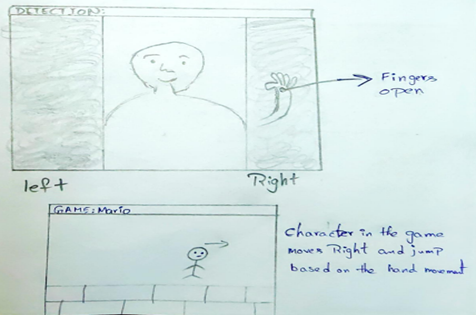 DETECTION:
Fingers
open
left
Right
GAME: Mario
Character in the game
moves Right and jump
based on the hand movement